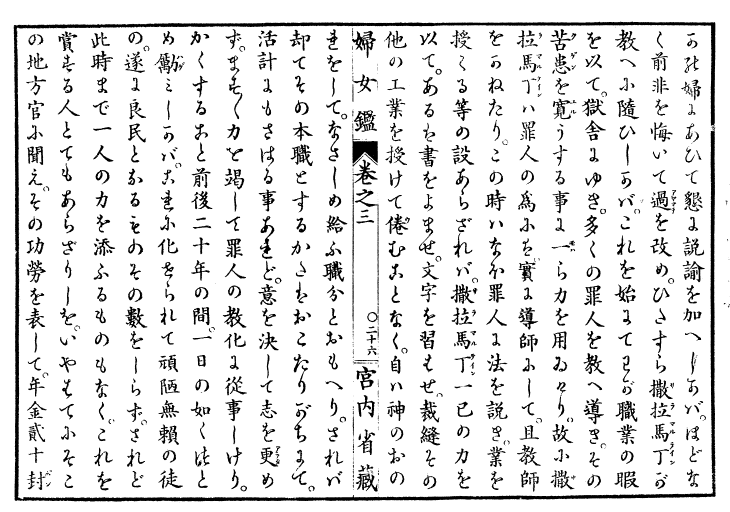 かの婦にあひて懇に説諭を加へしかバ。ほどな
く前非を悔いて過を改め。ひたすら撒拉馬丁が
教へに隨ひしかバ。これを始にてわが職業の暇
を以て。獄舎にゆき。多くの罪人を教へ導き。その
苦患を寛うする事に一ら力を用ゐけり。故に撒
拉馬丁ハ罪人の爲にを實に導師にして。且教師
をかねたり。この時ハなほ罪人に法を説き。業を
授くる等の設あらざれバ。撒拉馬丁一己の力を
以て。あるハ書をよませ。文字を習ハせ。裁縫その
他の工業を授けて倦むことなく。自ハ神のおの
婦女鑑 卷之三 〇二十六 宮内省藏
れをして。なさしめ給ふ職分とおもへり。されバ
却てその本職とするかたハおこたりがちにて。
活計にもさはる事あれど。意を決して志を更め
ず。ますます力を竭して罪人の教化に從事しけり。
かくすること前後二十年の間。一日の如くはと
め勵ミしかバ。これに化せられて頑陋無賴の徒
の。遂に良民となるものその數をしらず。されど
此時まで一人の力を添ふるものもなく。これを
賞する人とてもあらざりしを。いやはてにそこ
の地方官に聞え。その功勞を表して。年金貳十封